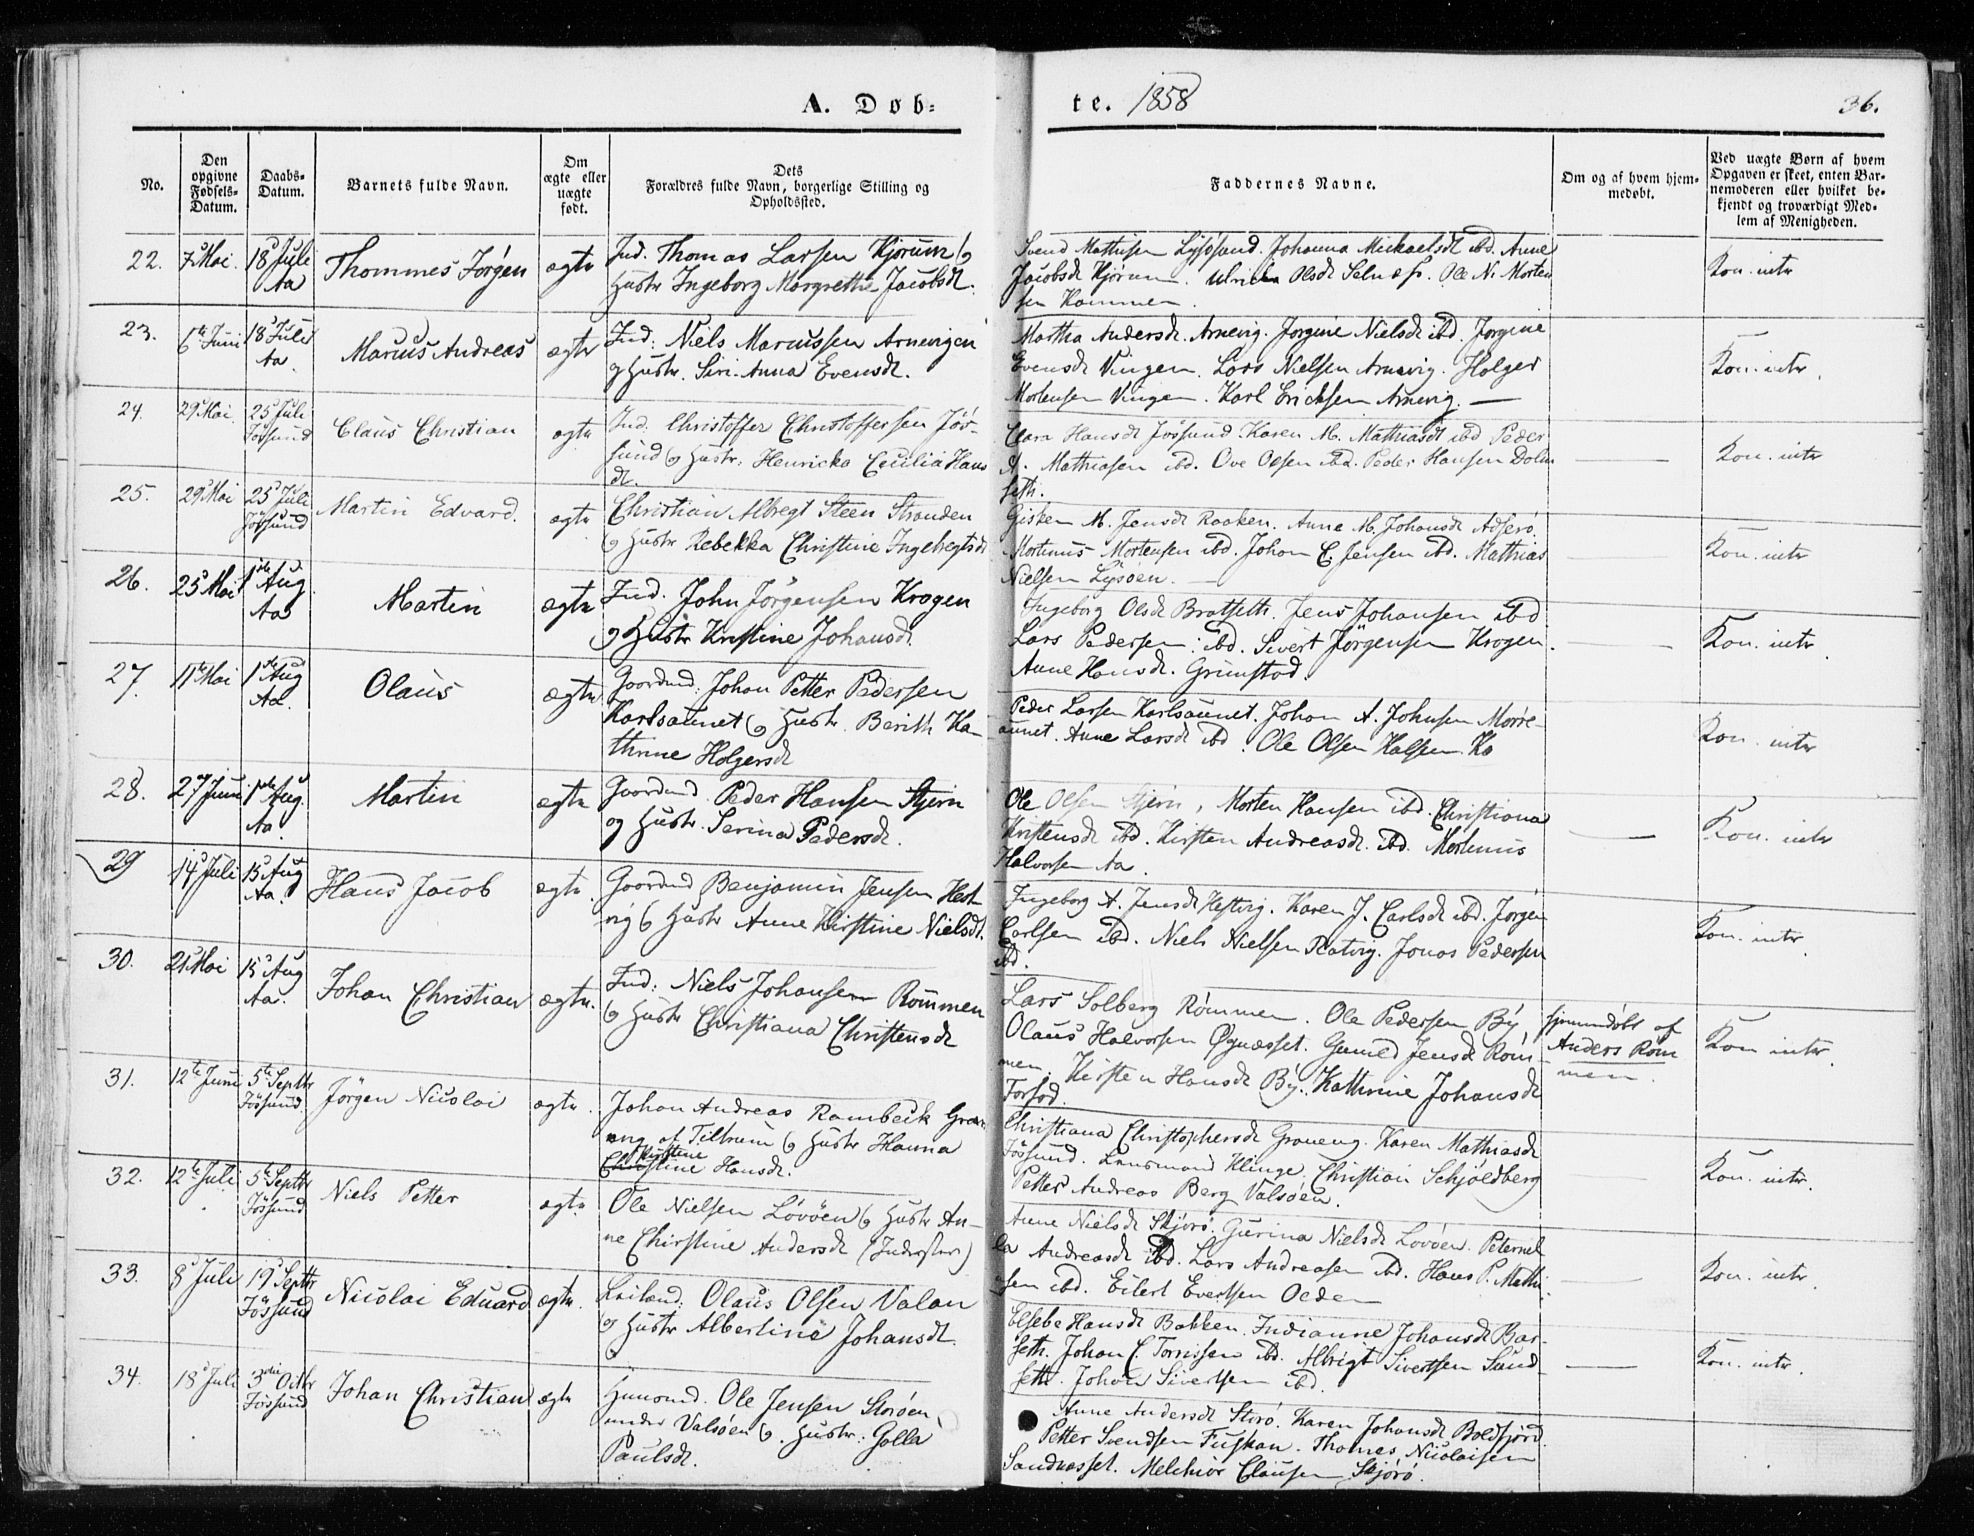 A. Døb-
te. 1858
36.
No.
Den opgivne Fødsels-Datum.
Daabs-Datum.
Barnets fulde Navn.
Om ægte eller uægte født.
Dets Forældres fulde Navn, borgerlige Stilling og Opholdssted.
Faddernes Navne.
Om og af hvem hjem-medøbt.
Ved uægte Børn af hvem Opgaven er skeet, enten Bar-nemoderen eller hvilket be-kjendt og troværdigt Med-lem af Menigheden.
22. 7 Mai. 18 Juli Aa Thommes Jørgen ægte
Ind. Thomas Larsen Kjørum og
Hustr Ingeborg Margrethe Jacobsdt.
Svend Mathisen Lysøsund. Johanna Mickaelsdt ibd. Anne
Jacobsdt Kjørum. Ulricka Olsdt Selnæs. Ole N. Morten
sen Hammer.
Kon. intr
23. 6te Juni 18 Juli Aa. Marius Andreas ægte
Ind: Niels Marcussen Arnevigen
og Hustr. Siri Anna Evensdt.
Martha Andersdt. Arnevig. Jorgine Nielsdt ibd. Jorgine
Evensdt Vingen. Lars Nielsen Arnevig. Holger
Mortensen Vingen. Karl Ericksen Arnevig. —
Kon. intr.
24. 29 Mai. 25 Juli Jøssund Claus Christian ægte
Ind. Christoffer Christoffersen Jøs-
sund og Hustr. Henricka Cecilia Hans
dt.
Clara Hansdt Jøssund. Karen M. Mathiasdt ibd Peder
A. Mathiasen ibd. Ove Olsen ibd. Peder Hansen Dolm
seth.
Kon. intr
25. 29 Mai 25 Juli Jøssund Martin Edvard. ægte
Christian Albregt Steen Stranden
og Hustr Rebekka Christine Ingebregtsdt
Gisken M. Jensdt Raaken. Anne M. Johansdt Adserø
Mortinus Mortensen ibd. Johan C. Jensen ibd. Mathias
Nielsen Lysøen. —
Kon. intr
26. 25 Mai 1ste Aug Aa Martin ægte
Ind. John Jørgensen Krogen
og Hustr Kristine Johansdt.
Ingeborg Olsdt Bratseth. Jens Johansen ibd
Lars Pedersen ibd. Sivert Jørgensen Krogen.
Anne Hansdt. Grimstad
Kon. intr
27. 11te Mai 1ste Aug Aa. Olaus ægte
Gaardmd. Johan Petter Pedersen
Karlsaunet og Hustr. Berith Ka-
thrine Holgersdt
Peder Larsen Karlsaunet. Johan A. Johnsen Morre-
aunet. Anne Larsdt ibd. Ole Olsen Halsen. Ka
Kon. intr
28. 27 Juni 1ste Aug. Aa. Martin ægte
Gaardmd. Peder Hansen Stjern
og Hustr. Serina Pedersdt.
Ole Olsen Stjern, Morten Hansen ibd. Christiana
Kristensdt ibd. Kirsten Andreasdt. ibd. Mortinus
Halvorsen Aa.
Kon. intr
29 14 Juli 15 Aug Aa. Hans Jacob ægte.
Gaardmd Benjamin Jensen Hest-
vig og Hustr Anne Kirstine Nielsdt.
Ingeborg A. Jensdt Hestvig. Karen J. Carlsdt ibd. Jørgen
Carlsen ibd. Niels Nielsen Ratvig. Jonas Pedersen
ibd.
Kon. intr.
30. 21 Mai 15 Aug Aa. Johan Christian ægte.
Ind: Niels Johansen Rømmen
og Hustr Christiana Christensdt
Lars Solberg Rømmen. Ole Pedersen By,
Olaus Halvorsen Øynesset. Gunild Jensdt Røm-
men. Kirsten Hansdt By. Kathrine Johansdt
Forfod.
hjemmdøbt af
Anders Røm
men.
Kon intr.
31. 12te Juni 5te Septbr Jøssund. Jørgen Nicolai ægte.
Johan Andreas Rambeck Gran
eng af Tiltrum og Hustr Hanna
Kirstine
Christine Hansdt.
Christiana Christophersdt Graneng. Karen Mathiasdt
Jøssund. Lensmand Klinge. Christian Schjøldberg
Petter Andreas Berg Valsøen.
Kon. intr.
32. 12te Juli 5te Septbr Jøssund Niels Petter ægte.
Ole Nielsen Løvøen og Hustr An-
ne Christine Andersdt (Inderster)
Anne Nielsdt Skjørø. Gurina Nielsdt Løvøen. Peternel
la Andreasdt ibd. Lars Andreasen ibd. Hans P. Mathi
asen ibd. Eilert Evertsen Oeden
Kon. intr.
33. 8 Juli 19 Septbr Jøssund Nicolai Eduard ægte.
Leilænd: Olaus Olsen Valan
og Hustr Albertine Johansdt.
Elsebe Hansdt Bakken. Indianne Johansdt Bar-
seth. Johan C. Tørrissen ibd. Albrigt Sivertsen Sund
seth. Johan Sivertsen ibd.
Kon. intr.
34. 18 Juli 3die Octbr Jøssund Johan Christian ægte
Husmd. Ole Jensen Storøen,
under Valsøen og Hustr. Golla
Paulsdt.
Anne Andersdt Storø. Karen Johansdt Boldfjord.
Petter Svendsen Fuskan. Thomas Nicolaisen
Sandnesset. Melchior Clausen Skjørø.